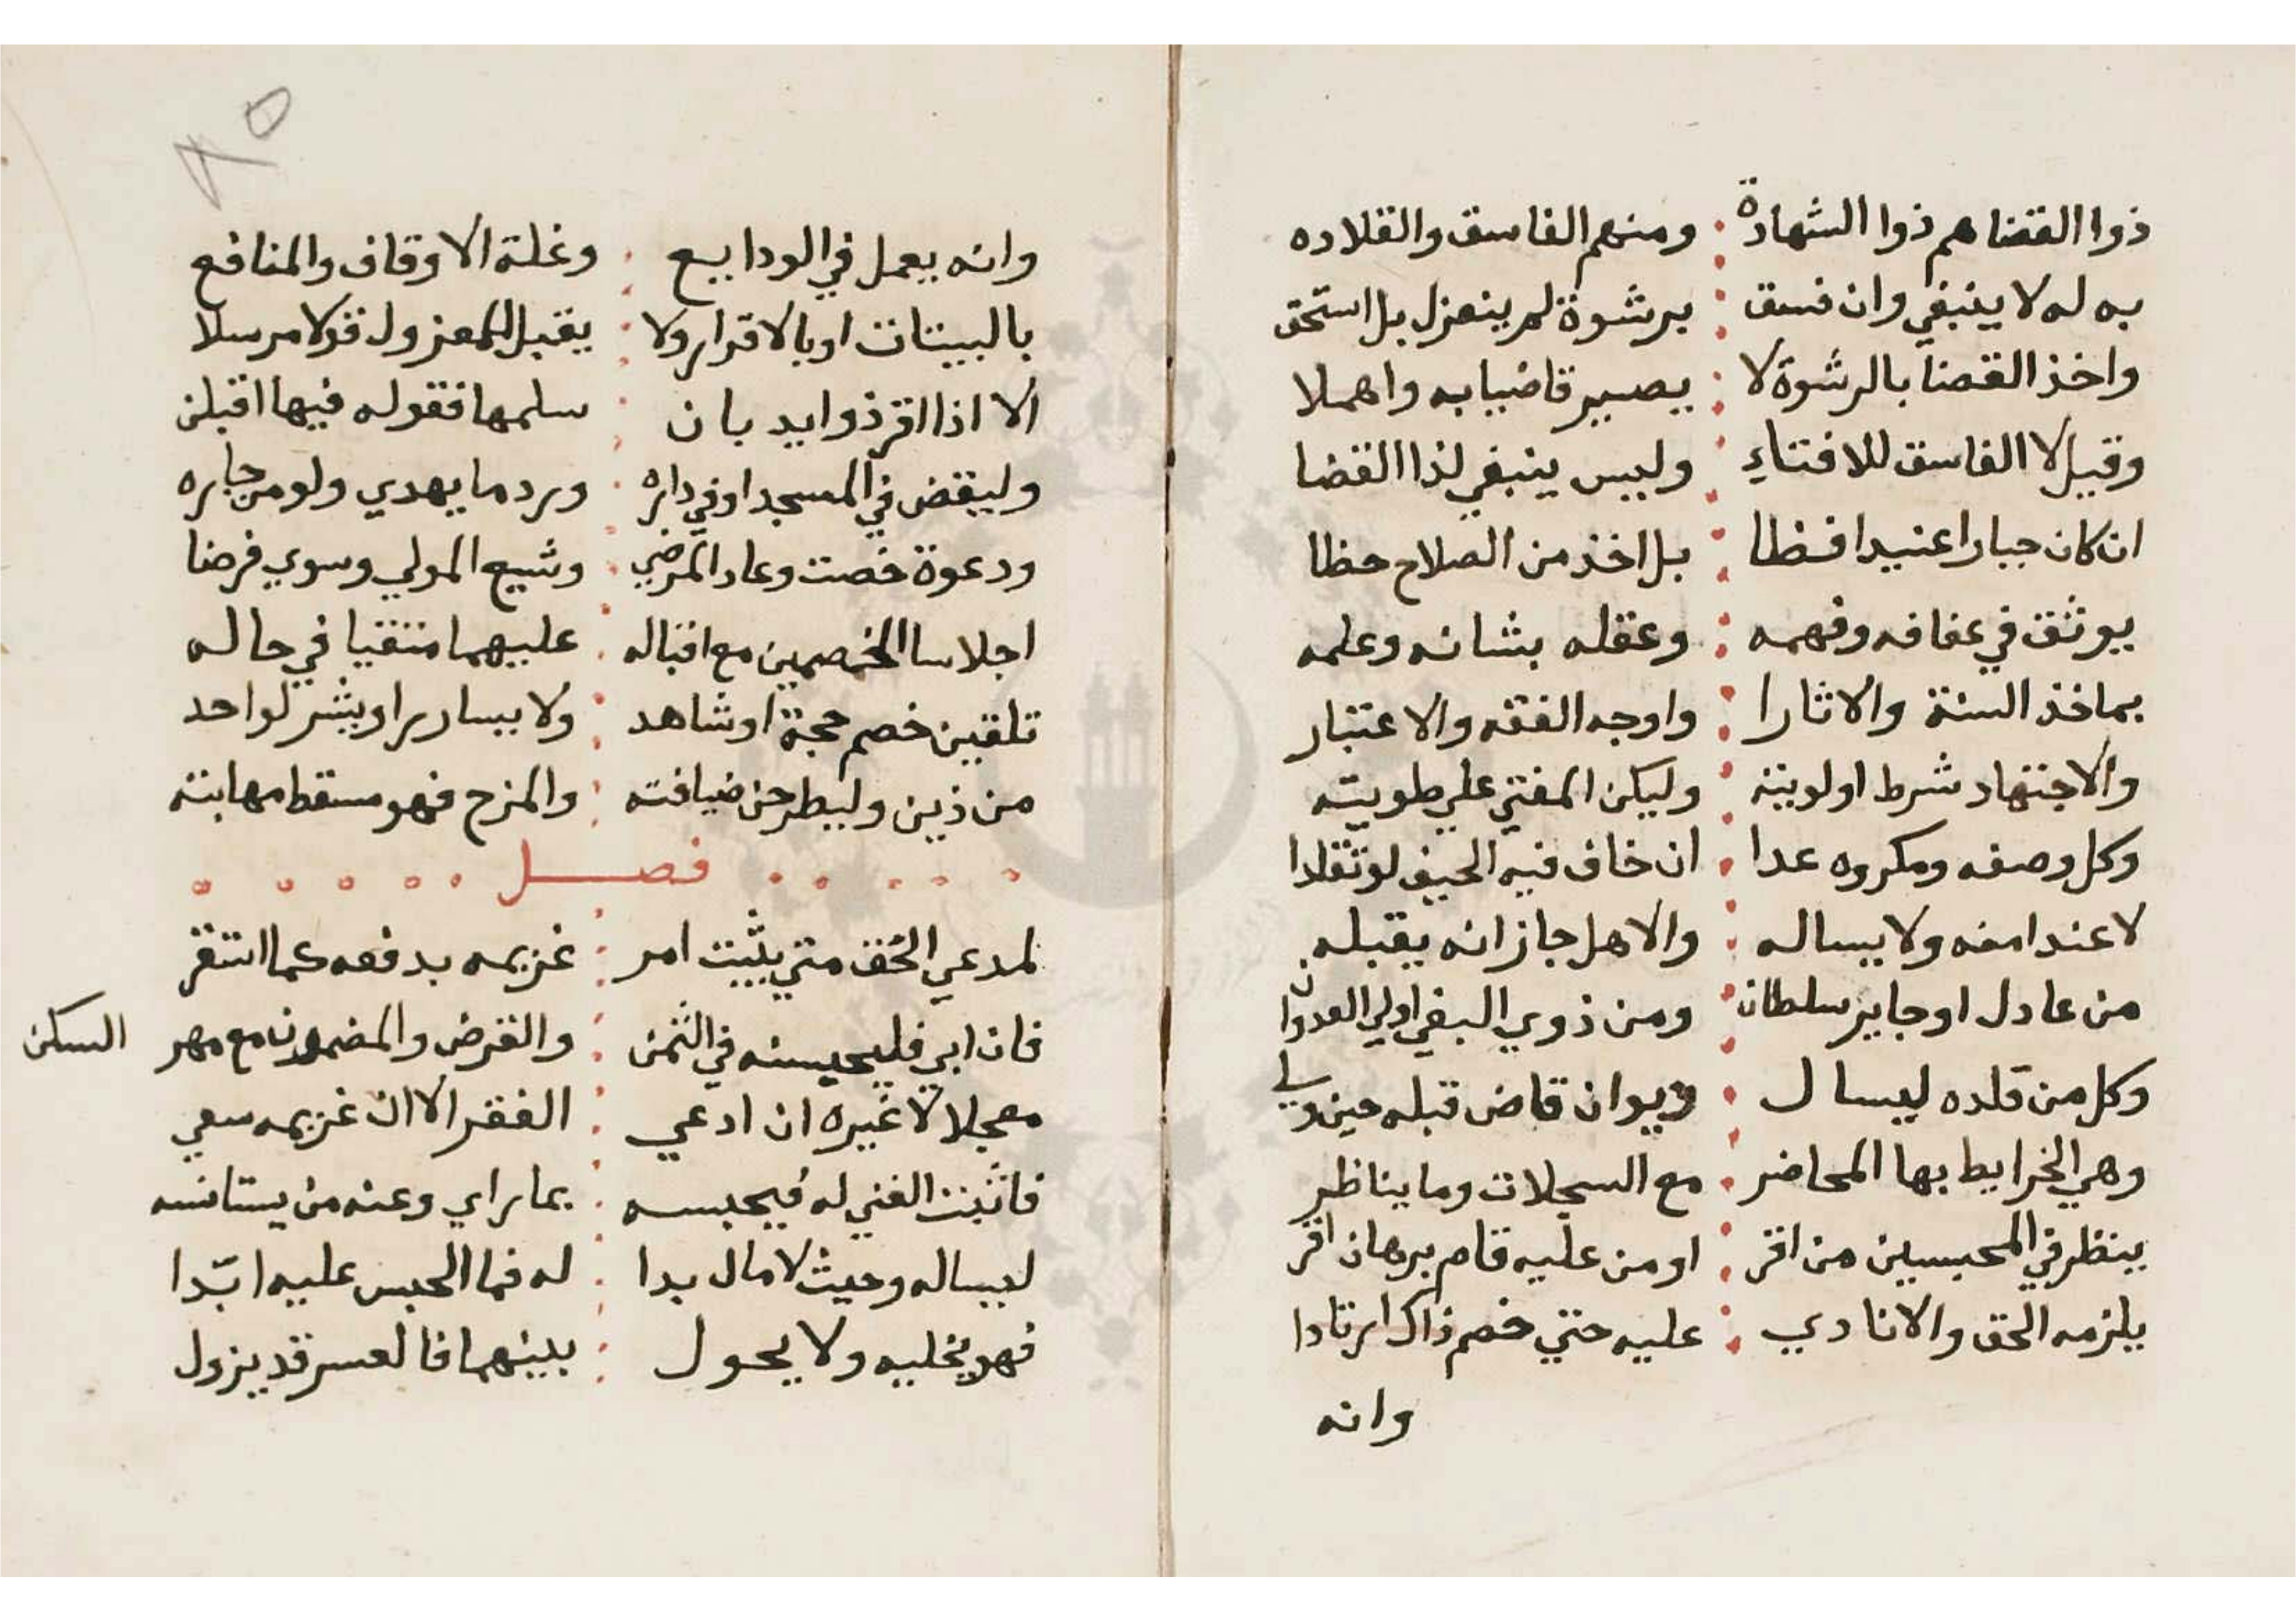 ذوا القضا هم ذوا الشهادة ومنهم الفاسق والقلاده
به له لا ينبغي وان فسق برشوة لم ينعزل بل استحق
واخذ القضا بالرشوة لا يصير قاضيا به واهملا
وقيل لا الفاسق للافتاء وليس ينبغي لذا القضا
ان كان جبارا عنيدا فظا بل اخذ من الصلاح حظا
يوثق في عفافه وفهمه وعقله بشانه وعلمه
بماخذ السنة والاثارا واوجه الفقه والاعتبار
والاجتهاد شرط اولويته وليكن المفتي علي طويته
وكل وصفه ومكروه عدا ان خاف فيه الحيف لو تقلدا
لا عند امنه ولا يساله والاهل جاز انه يقبله
من عادل او جاير سلطان ومن ذوي البغي اولي العدوان
وكل من قلده ليسال ديوان قاض قبله حين ولي
وهي الخرايط بها المحاضر مع السجلات وما يناظر
ينظر في المحبسين من اقر او من عليه قام برهان اقر
يلزمه الحق والا نادي عليه حتي خصم ذاك ارتادا
وانه
وانه يعمل في الودايع وغلة الاوقاف والمنافع
بالبينات او بالاقرار ولا يقبل للمعزول قولا مرسلا
الا اذا اقر ذوايد بان سلمها فقوله فيها اقبلن
وليقض في المسجد او في داره ورد ما يهدي ولو من جاره
ودعوة خصت وعاد المرضي وشيع المولي وسوي فرضا
اجلاسا الخصمين مع اقباله عليهما متقيا في حاله
تلقين خصم حجة او شاهد ولا يسارر او يشر لواحد
من ذين وليطرحن ضيافته والمزح فهو مسقط مهابته
فصل
لمدعي الحق متي يثبت امر غريمه بدفعه كما استقر
فان ابي فليحبسنه في الثمن والقرض والمضمون مع مهر السكن
معجلا لا غيره ان ادعي الفقر الا ان غريمه سعي
فاثبت الغني له فيحبسه بما راي وعنه من يستانسه
ليساله وحيث لا مال بدا له فما الحبس عليه ابدا
فهو يخليه ولا يحول بينهما فالعسر قد يزول